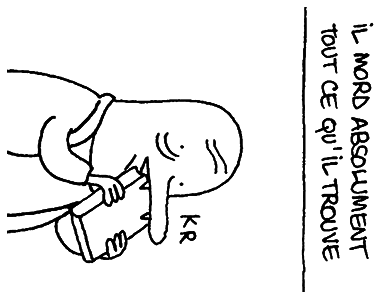 IL MORD ABSOLUMENT
TOUT CE QU'IL TROUVE
KR